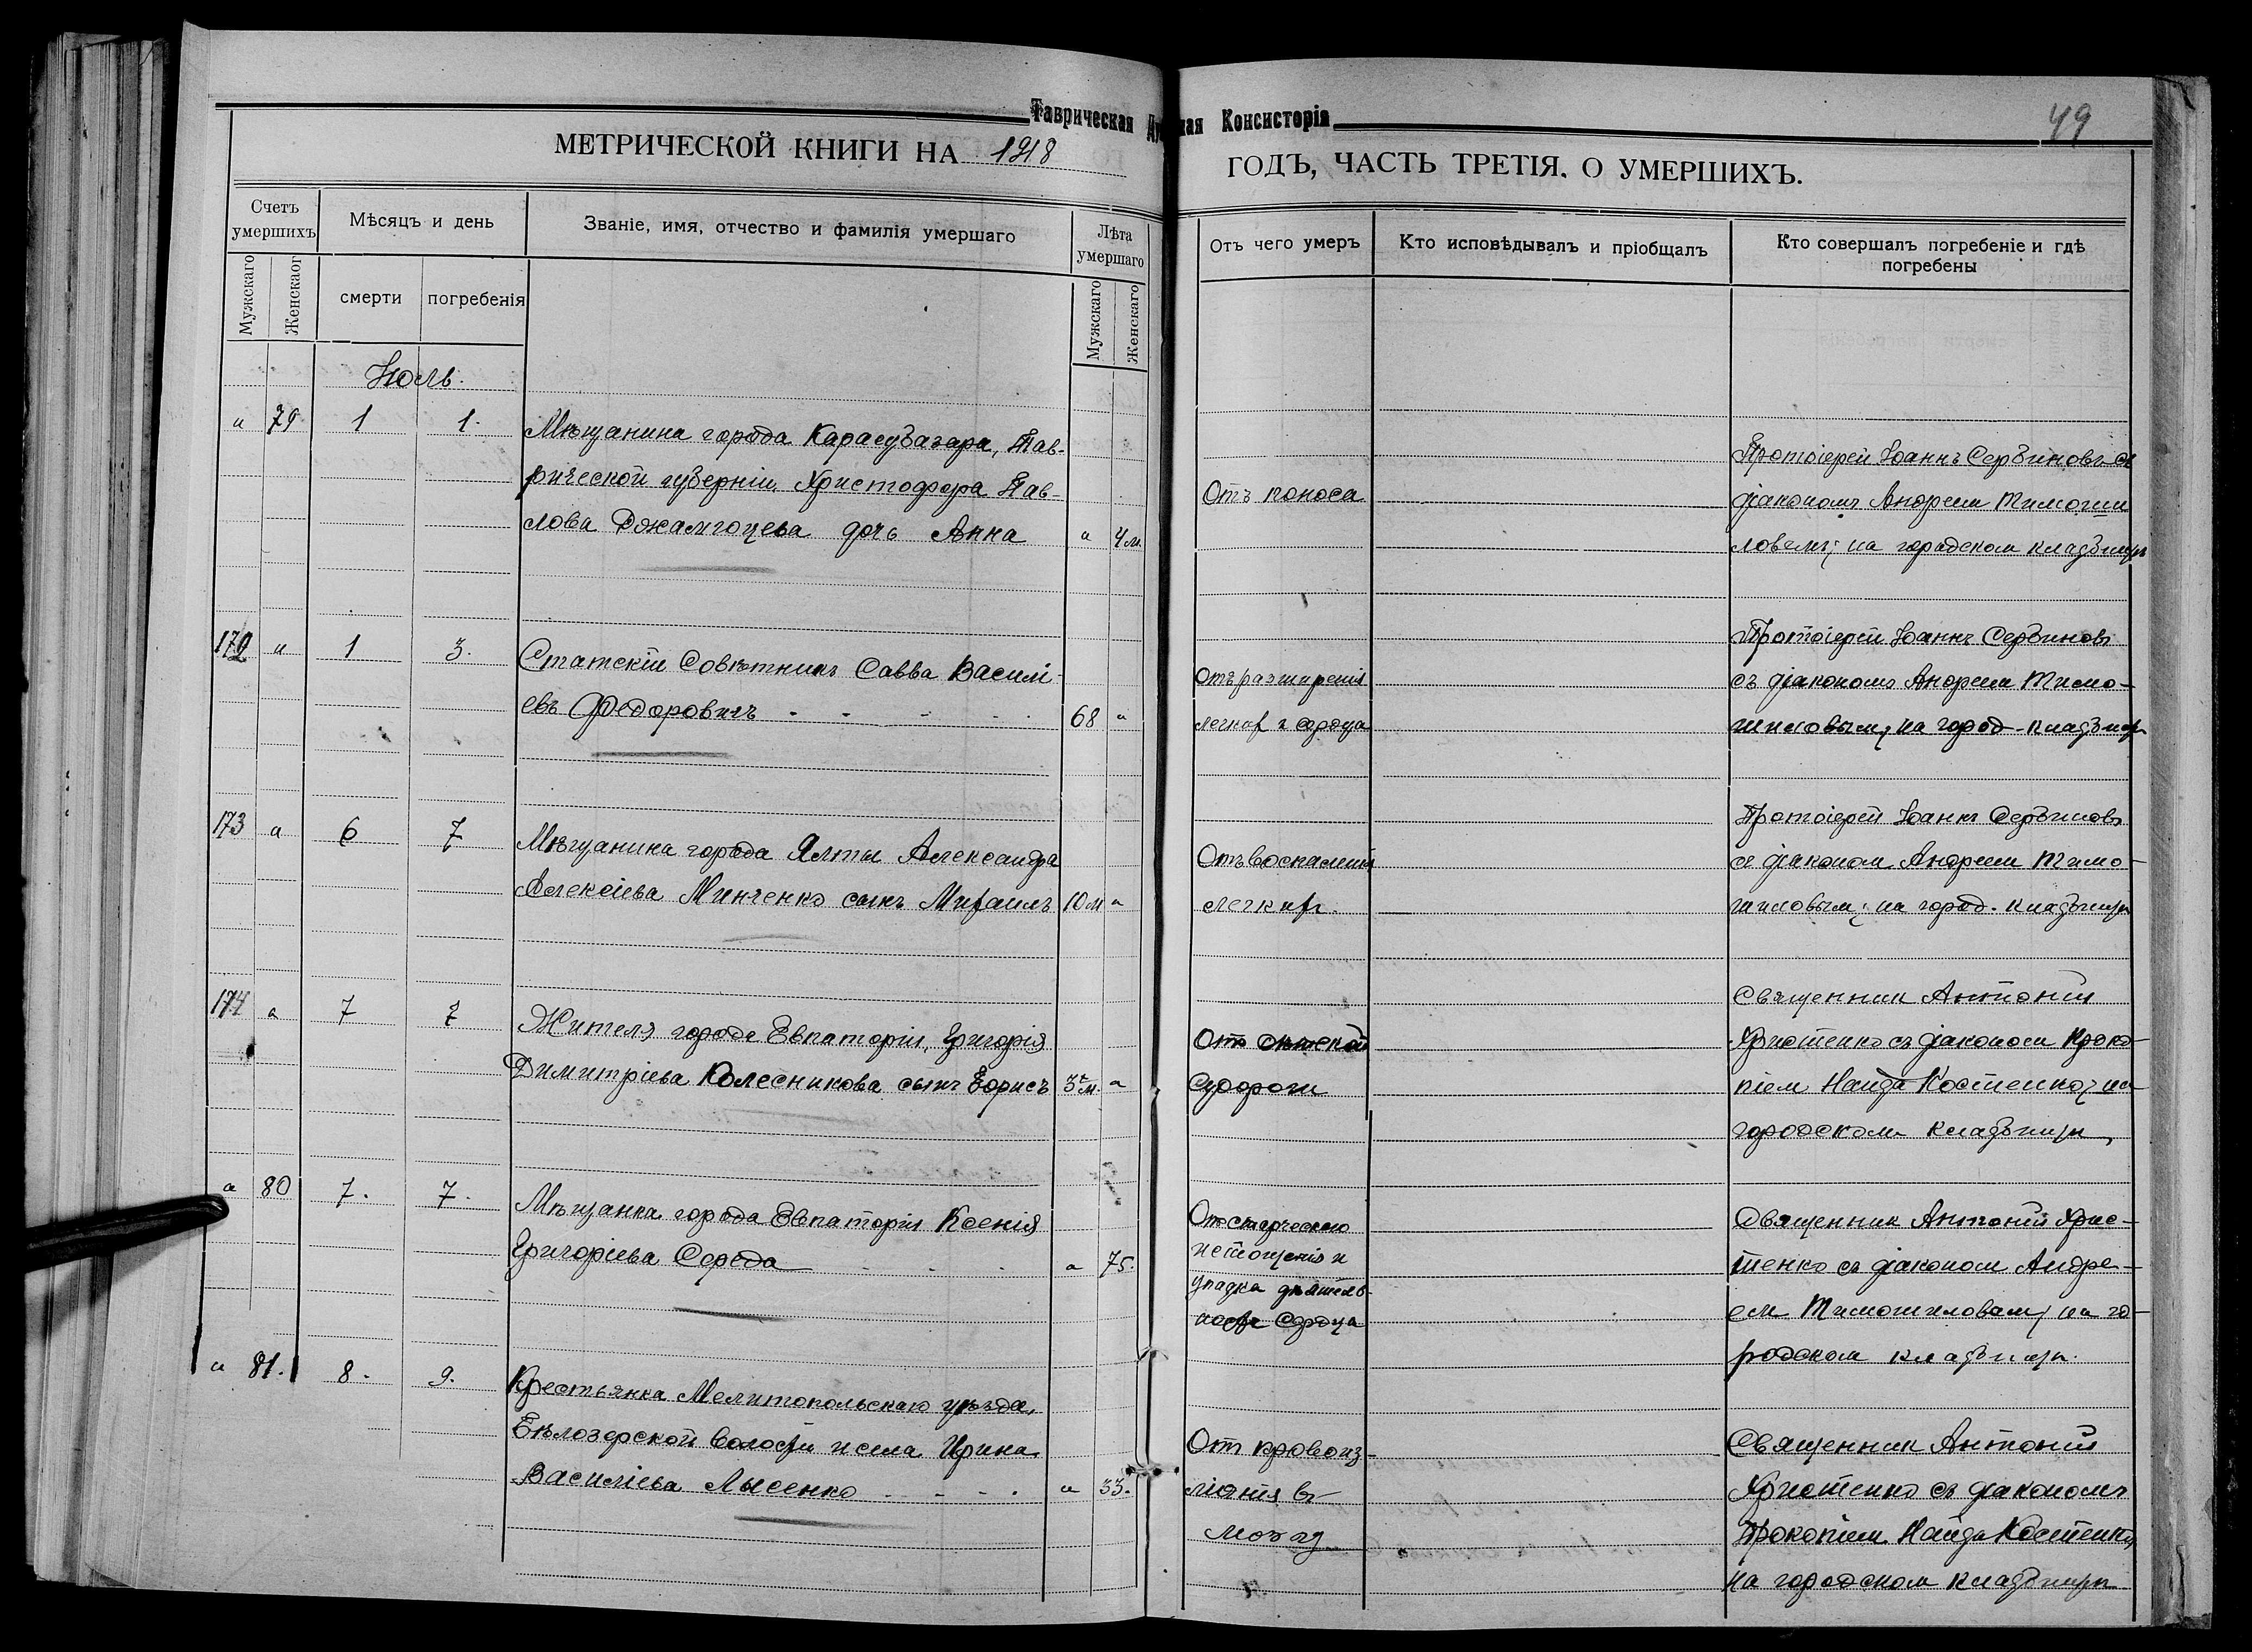 Таврическая Ду
ная Консисторія
49
МЕТРИЧЕСКОЙ КНИГИ НА 1918
ГОДЪ, ЧАСТЬ ТРЕТІЯ. О УМЕРШИХЪ.
Счетъ умершихъ
Мѣсяцъ и день
Званіе, имя, отчество и фамилія умершаго
Лѣта умершаго
Отъ чего умеръ
Кто исповѣдывалъ и пріобщалъ
Кто совершалъ погребеніе и гдѣ погребены
Мужскаго
Женскаог
смерти
погребенія
Мужскаго
Женскаго
Іюль.
" 79 1 1.
Мѣщанина города Карасубазара, Тав-
рической губерніи Христофора Пав-
лова Джамгоцева дочь Анна " 4 м.
Отъ поноса
Протоіерей Іоаннъ Сербиновъ съ
діакономъ Андреем Тимоши
ловымъ; на городском кладбищѣ
172 " 1 3.
Статскій Совѣтникъ Савва Василі-
евъ Федоровичъ 68 "
Отъ разширенія
легких и сердца
Протоіерей Іоаннъ Сербиновъ
съ діакономъ Андреем Тимо-
шиловым; на город. кладбищѣ
173 " 6 7
Мѣщанина города Ялты Александра
Алексіева Минченко сынъ Михаилъ 10 м "
Отъ воспаленія
легкихъ.
Протоіерей Іоаннъ Сербиновъ
съ діаконом Андреем Тимо-
шиловым; на город. кладбищѣ
174 " 7 7
Жителя города Евпаторіи, Григорія
Димитріева Колесникова сынъ Борисъ "
Отъ дѣтской
судороги
Священник Антоній
Христенко съ діаконом Проко-
піем Найда Костенко; на
городском кладбищѣ
" 80 7. 7.
Мѣщанка города Евпаторіи Ксенія
Григоріева Середа " 75.
От старческаго
истощенія и
упадка дѣятель-
ности сердца
Священник Антоній Хрис-
тенко съ діаконом Андре-
ем Тимошиловым; на го-
родском кладбищѣ.
" 81. 8. 9.
Крестьянка Мелитопольскаго уѣзда,
Бѣлозерской волости и села Ирина
Василіева Лысенко " 33.
От кровоиз-
ліянія въ
мозгу
Священник Антоній
Христенко съ діакономъ
Прокопіем Найда Костенко,
на городском кладбищѣ